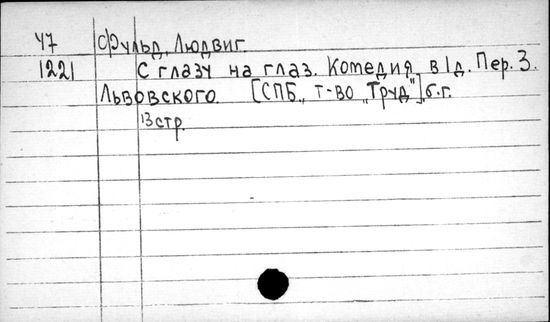 Ч7 Фульд, Людвиг.
1221 С глазу на глаз. Комедия в 1 д. Пер. З.
Львовского. [СПБ., т-во „Труд"], б.г.
13 стр.